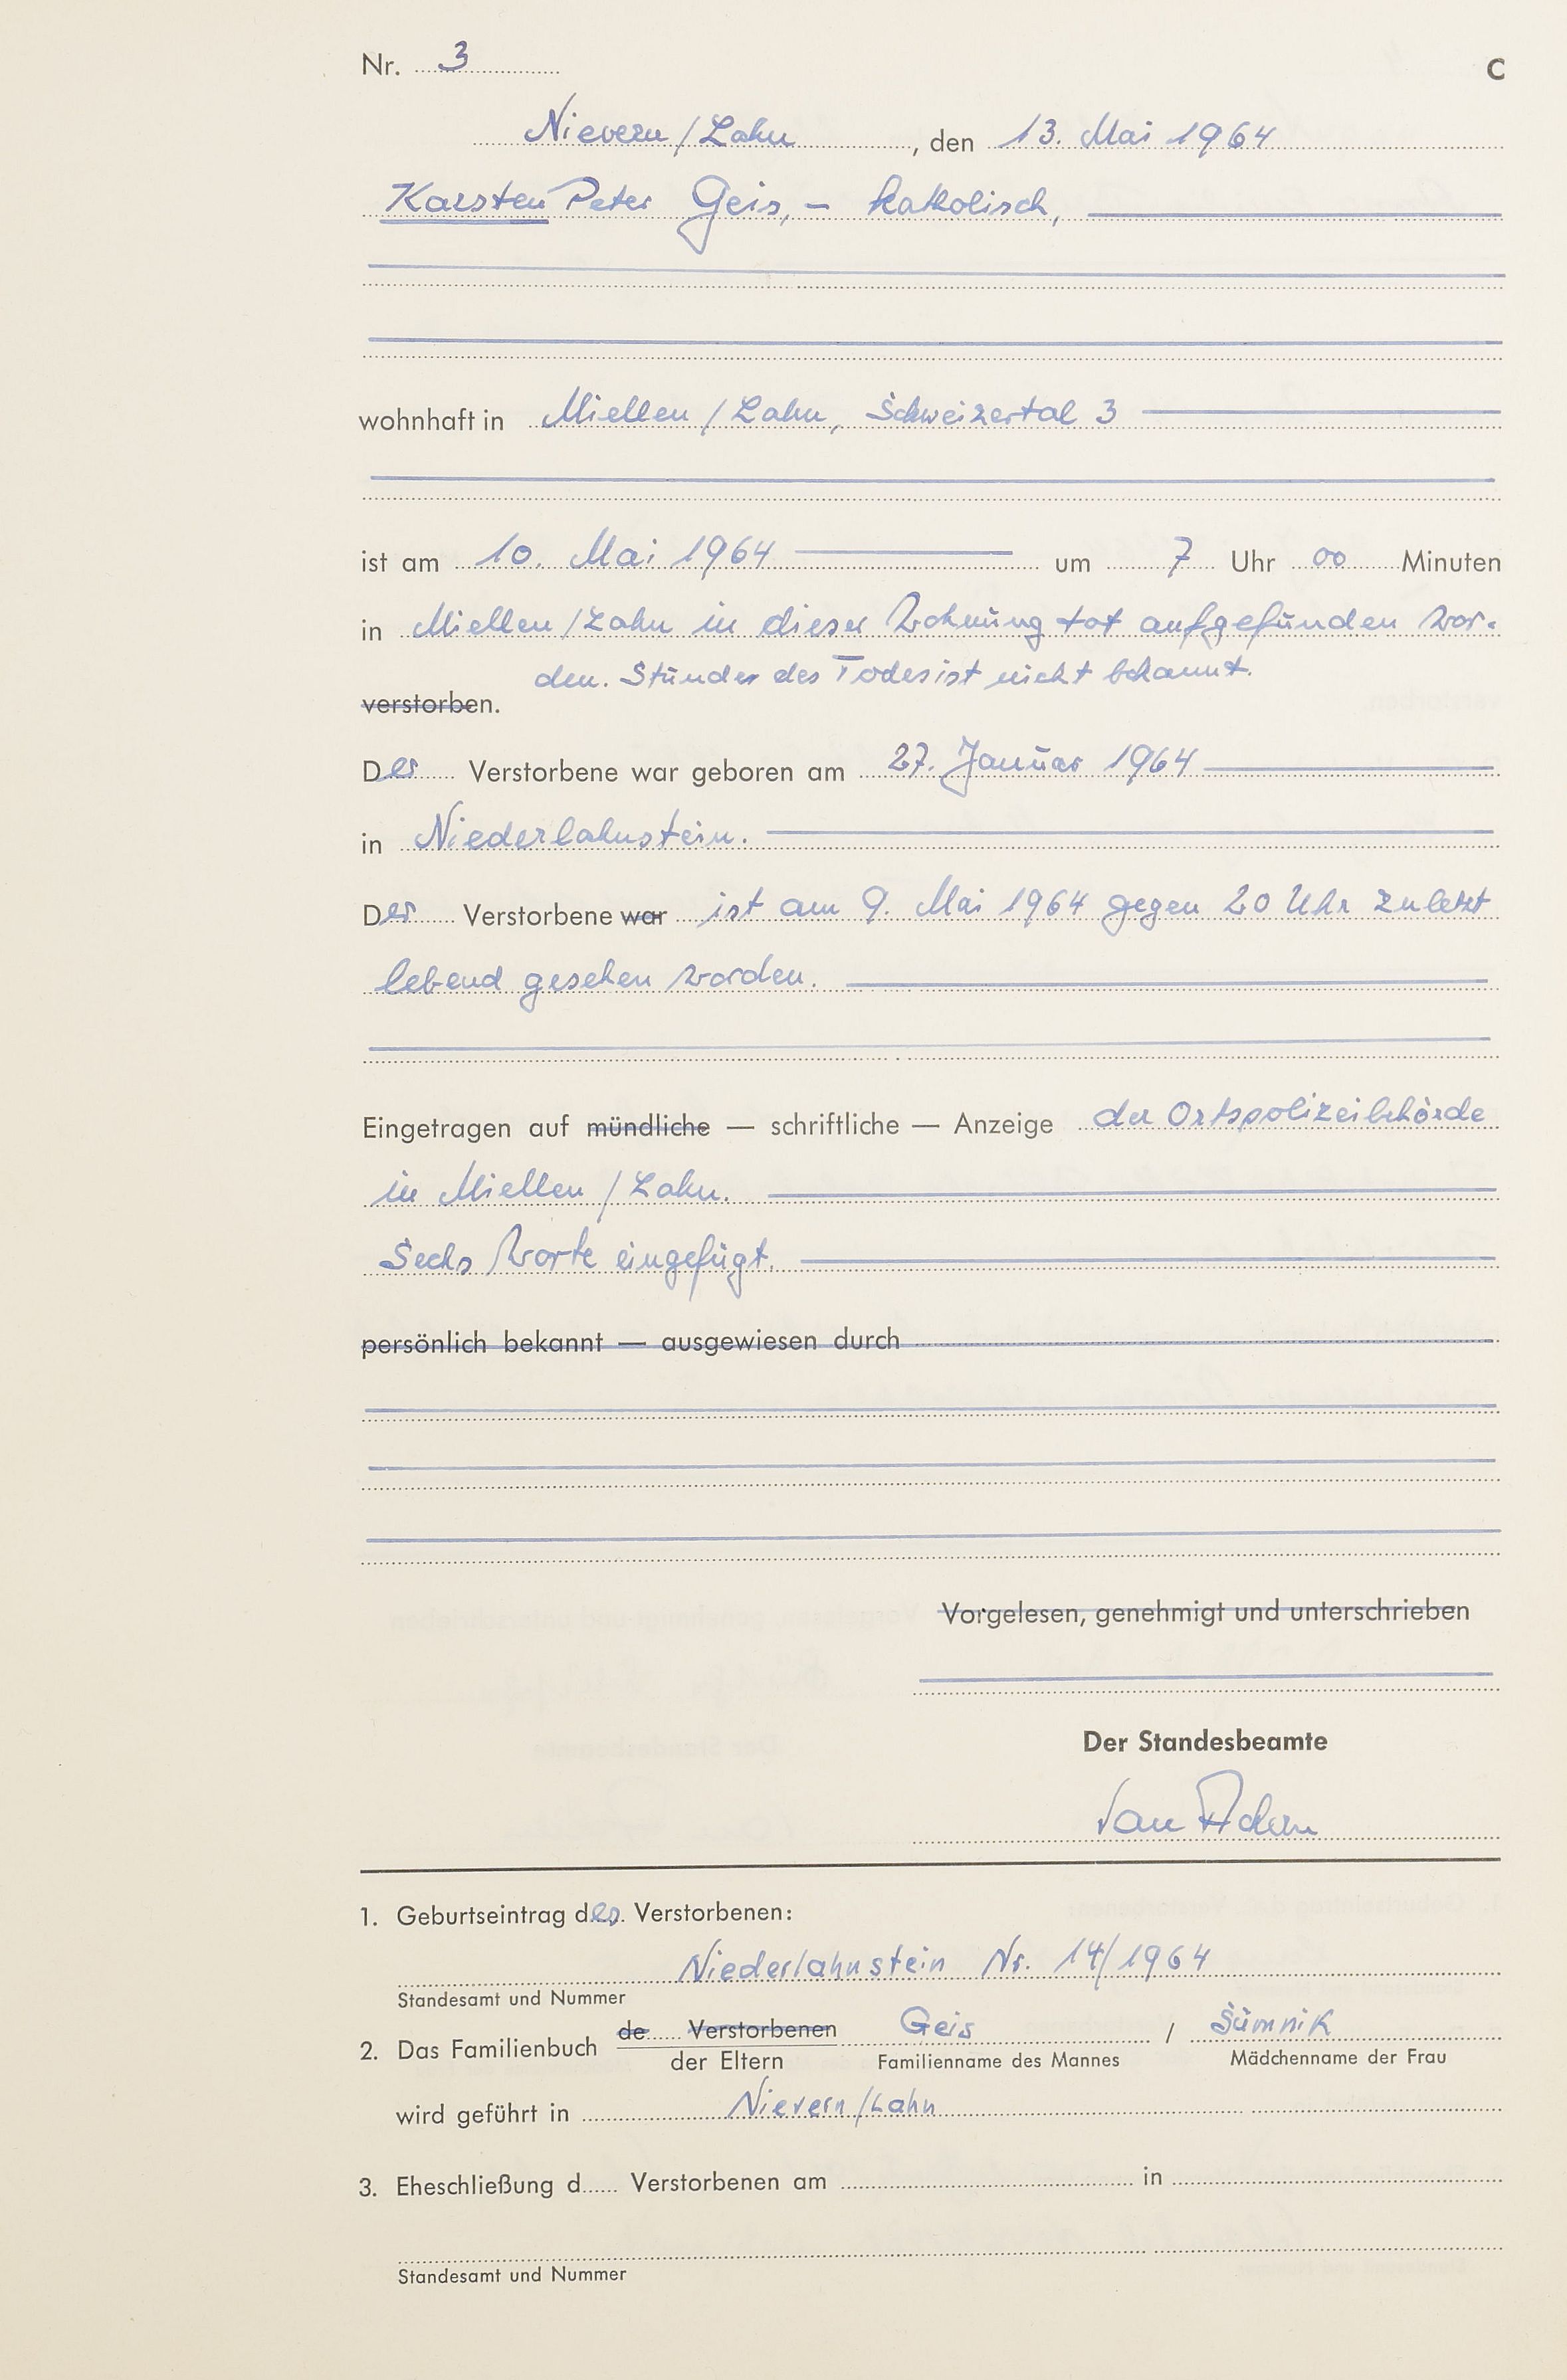 Nr. 3 C
Nievern/Lahn, den 13. Mai 1964
Karsten Peter Geis, - katholisch,
wohnhaft in Miellen/Lahn, Schweizertal 3
ist am 10. Mai 1964 um 7 Uhr 00 Minuten
in Miellen/Lahn in dieser Wohnung tot aufgefunden wor-
den. Stunde des Todes ist nicht bekannt.
verstorben.
Der Verstorbene war geboren am 27. Januar 1964
in Niederlahnstein.
Der Verstorbene war ist am 9. Mai 1964 gegen 20 Uhr zuletzt
lebend gesehen worden.
Eingetragen auf mündliche — schriftliche — Anzeige der Ortspolizeibehörde
in Miellen/Lahn.
Sechs Worte eingefügt.
persönlich bekannt — ausgewiesen durch
Vorgelesen, genehmigt und unterschrieben
Der Standesbeamte
1. Geburtseintrag des Verstorbenen:
Niederlahnstein Nr. 14/1964
Standesamt und Nummer
2. Das Familienbuch de Verstorbenen Geis / Sümnik
der Eltern Familienname des Mannes Mädchenname der Frau
wird geführt in Nievern/Lahn
3. Eheschließung d Verstorbenen am in
Standesamt und Nummer